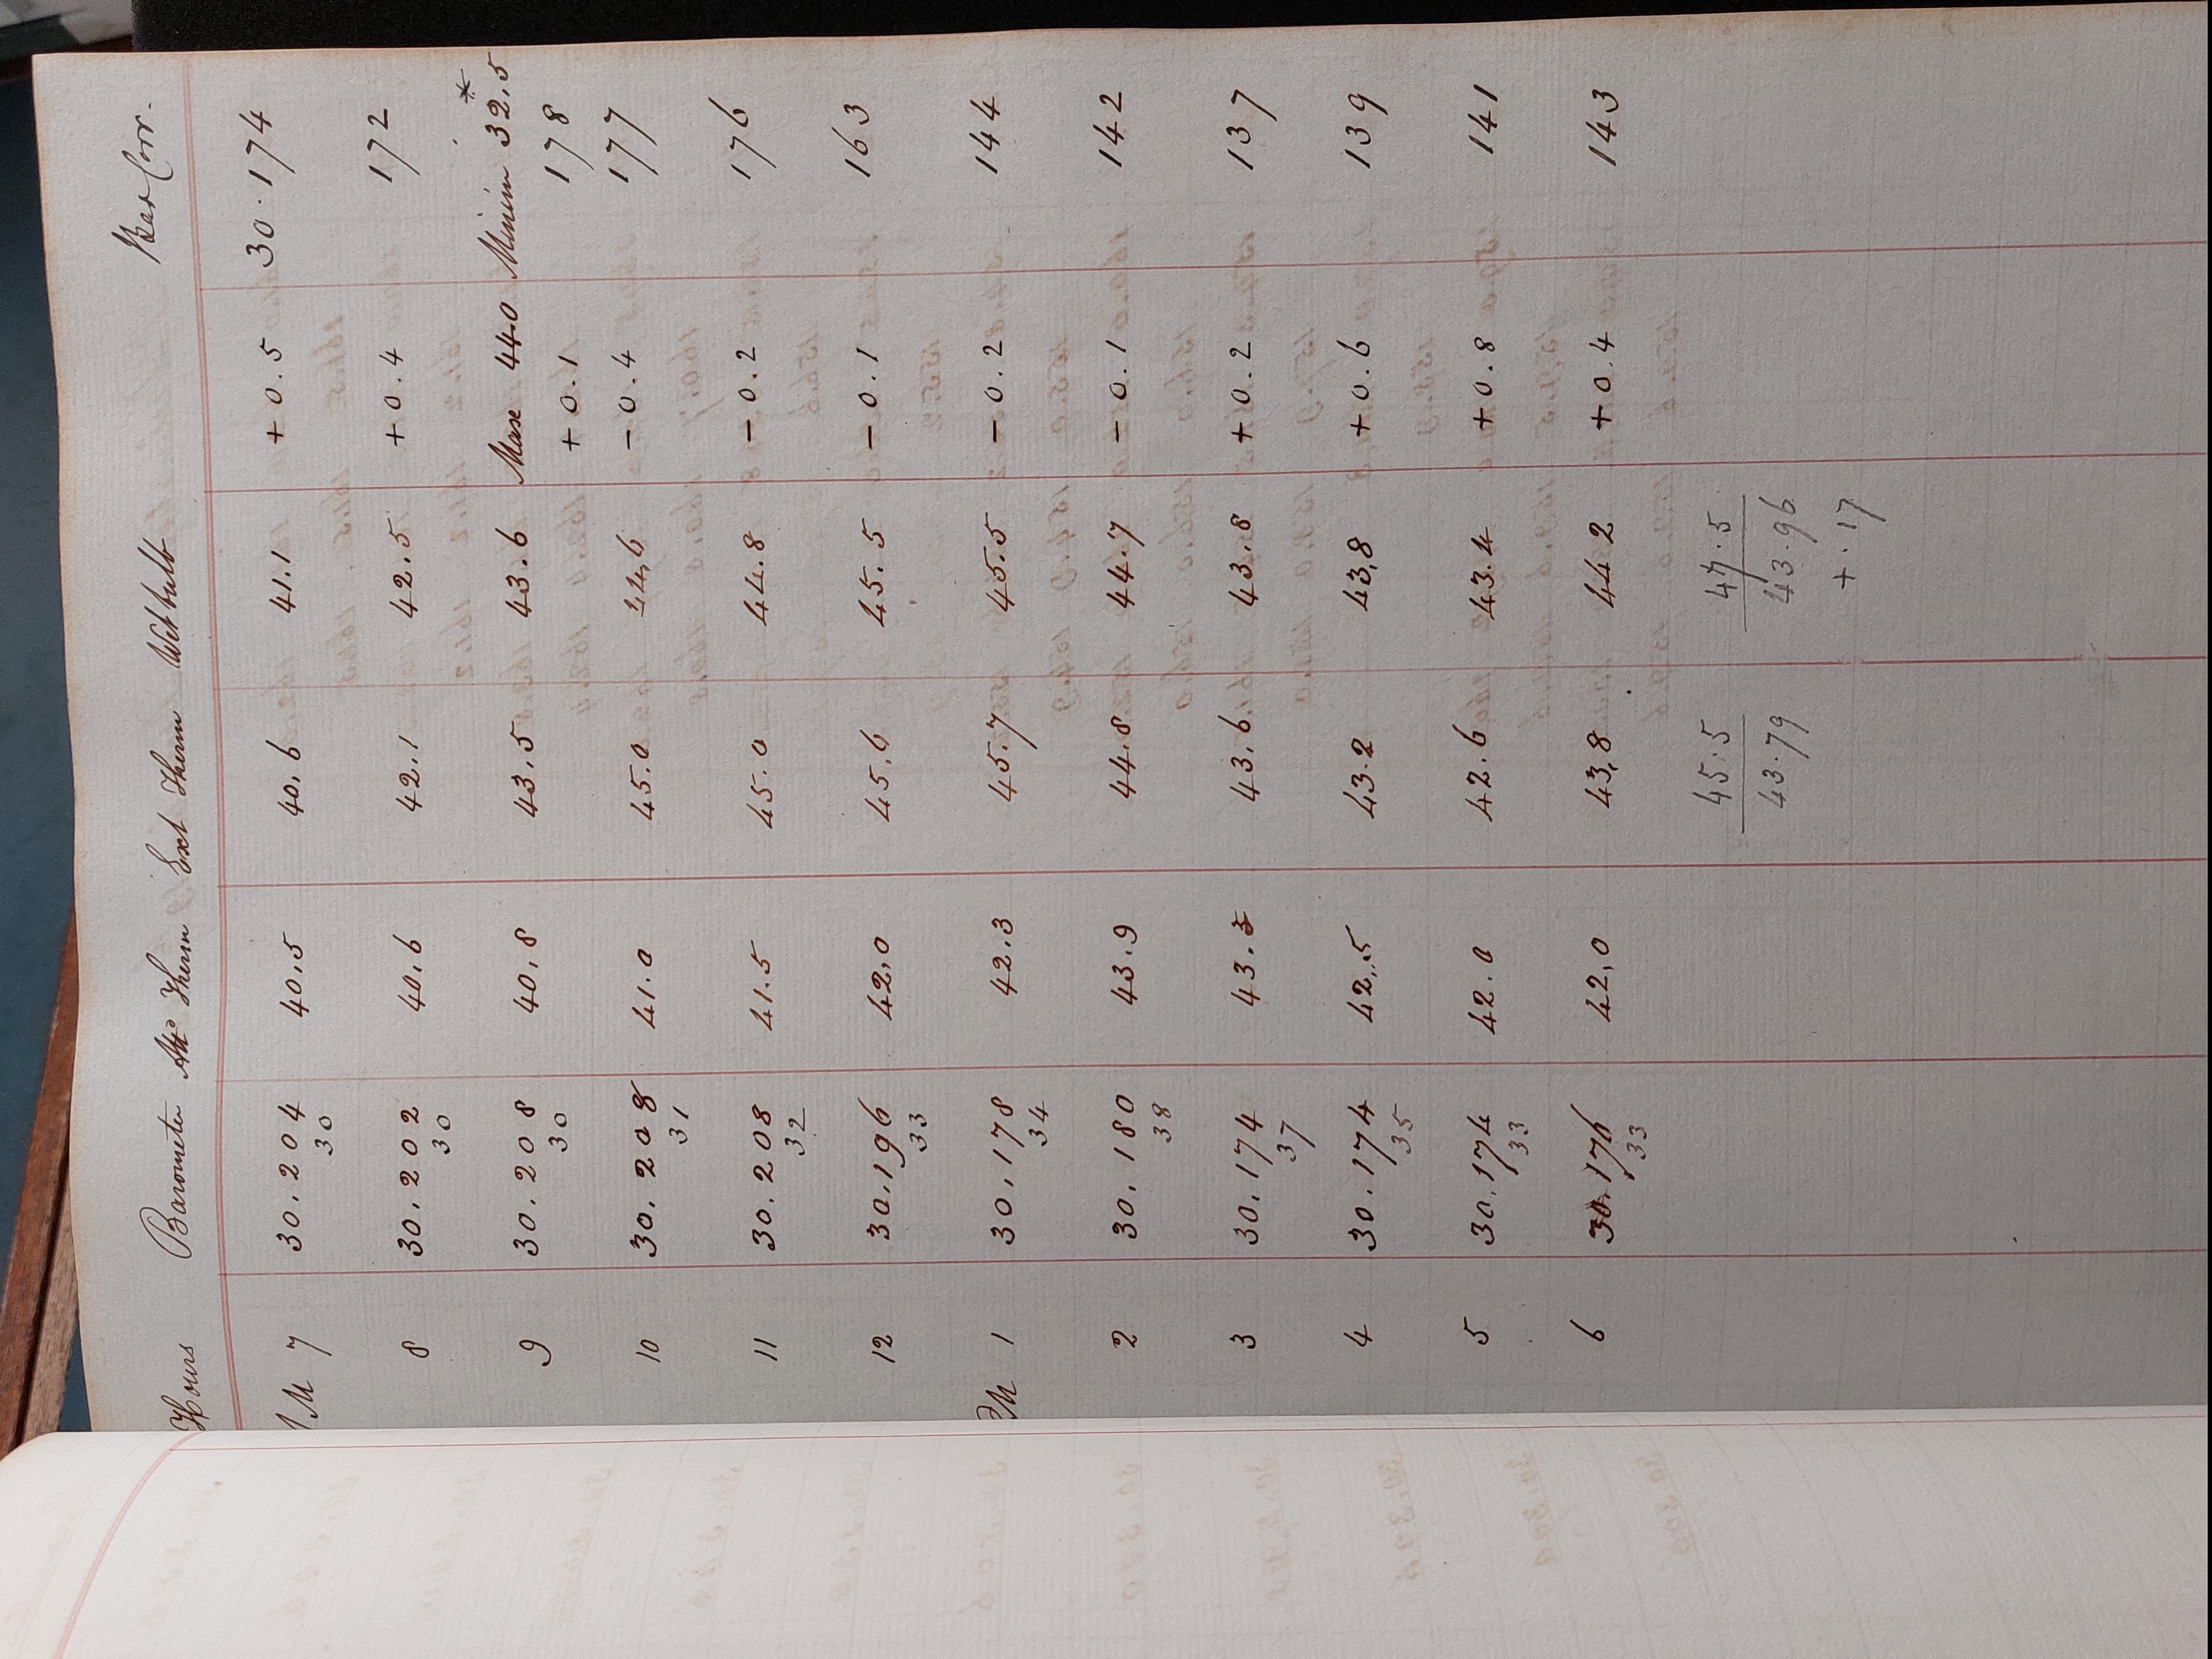 Hours Barometer Attd Therm Ext Therm Wet bulb Bar Corr.
M 7 30.204 40.5 40.6 41.1 +0.5 30.174
30
8 30.202 40.6 42.1 42.5 +0.4 172
30
9 30.208 40.8 43.5 43.6 Max 44.0 Minim 32.5 *
30 +0.1 178
10 30.208 41.0 45.0 44.6 -0.4 177
31
11 30.208 41.5 45.0 44.8 -0.2 176
32
12 30.196 42.0 45.6 45.5 -0.1 163
33
PM 1 30.178 42.3 45.7 45.5 -0.2 144
34
2 30.180 43.9 44.8 44.7 -0.1 142
38
3 30.174 43.5 43.6 43.8 +0.2 137
37
4 30.174 42.5 43.2 43.8 +0.6 139
35
5 30.174 42.0 42.6 43.4 +0.8 141
33
6 30.176 42.0 43.8 44 2 +0.4 143
33
45.5 47.5
43.79 43.96
+.17